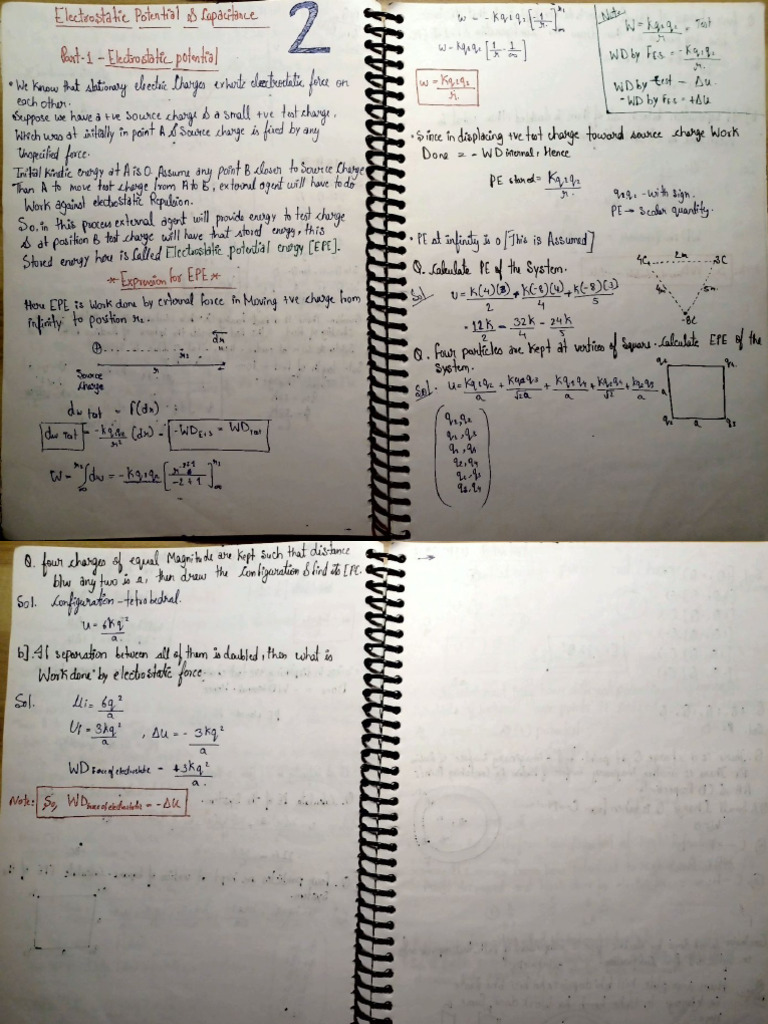 Electrostatic Potential & Capacitance
2
Part-1 - Electrostatic potential
• We know that stationary electric Charges exherts electrostatic force on
each other.
• Suppose we have a +ve source charge & a small +ve test charge.
Which was at initially in point A & Source charge is fixed by any
Unspecified force.
Initial kinetic energy at A is 0. Assume any point B closer to Source Charge
Than A to move test charge from A to B, external agent will have to do
Work against electrostatic Repulsion.
So, in this process external agent will provide energy to test charge
& at position B test charge will have that stored energy, this
Stored energy here is Called Electrostatic potential energy [EPE].
* Expression for EPE *
Here EPE is Work done by external force in Moving +ve charge from
infinity to position r2.
dx
r2
Source
Charge
r
dw = f(dx)
= -kq1q2/r² (dx) = -WD = WD
W = ∫dw = -kq1q2 [ /-2+1]
w = -kq1q2 [-1/r]
w = kq1q2 [1/r - 1/∞]
w = kq1q2/r
Note:
W = kq1q2/r
WD by FES = -kq1q2/r
WD by - ΔU
-WD by FES = +ΔU
• Since in displacing +ve test charge toward source charge Work
Done = -WD internal, Hence
PE stored = Kq1q2/r
q1q2 - with sign.
PE → Scalar quantity.
• PE at infinity is 0 [This is Assumed]
Q. Calculate PE of the System.
4C 2m 3C
4m 5m
-8C
Sol U = k(4)(3)/2 + k(-8)(4)/4 + k(-8)(3)/5
= 12k/2 - 32k/4 - 24k/5
Q. Four particles are kept at vertices of Square. Calculate EPE of the
System.
a
a
Sol. U = Kq1q2/a + kq1q3/√2a + kq1q4/a
Q. four charges of equal Magnitude are kept such that distance
b/w any two is a, then draw the Configuration & find its EPE.
Sol. Configuration - tetrahedral.
u = 6kq²/a
b]. If separation between all of them is doubled, then what is
Work done by electrostatic force.
Sol. Ui = 6q²/a
Uf = 3kq²/a , ΔU = - 3kq²/a
WD Force of electrostatic = +3kq²/a
Note: So, WD force of electrostatic = -ΔU